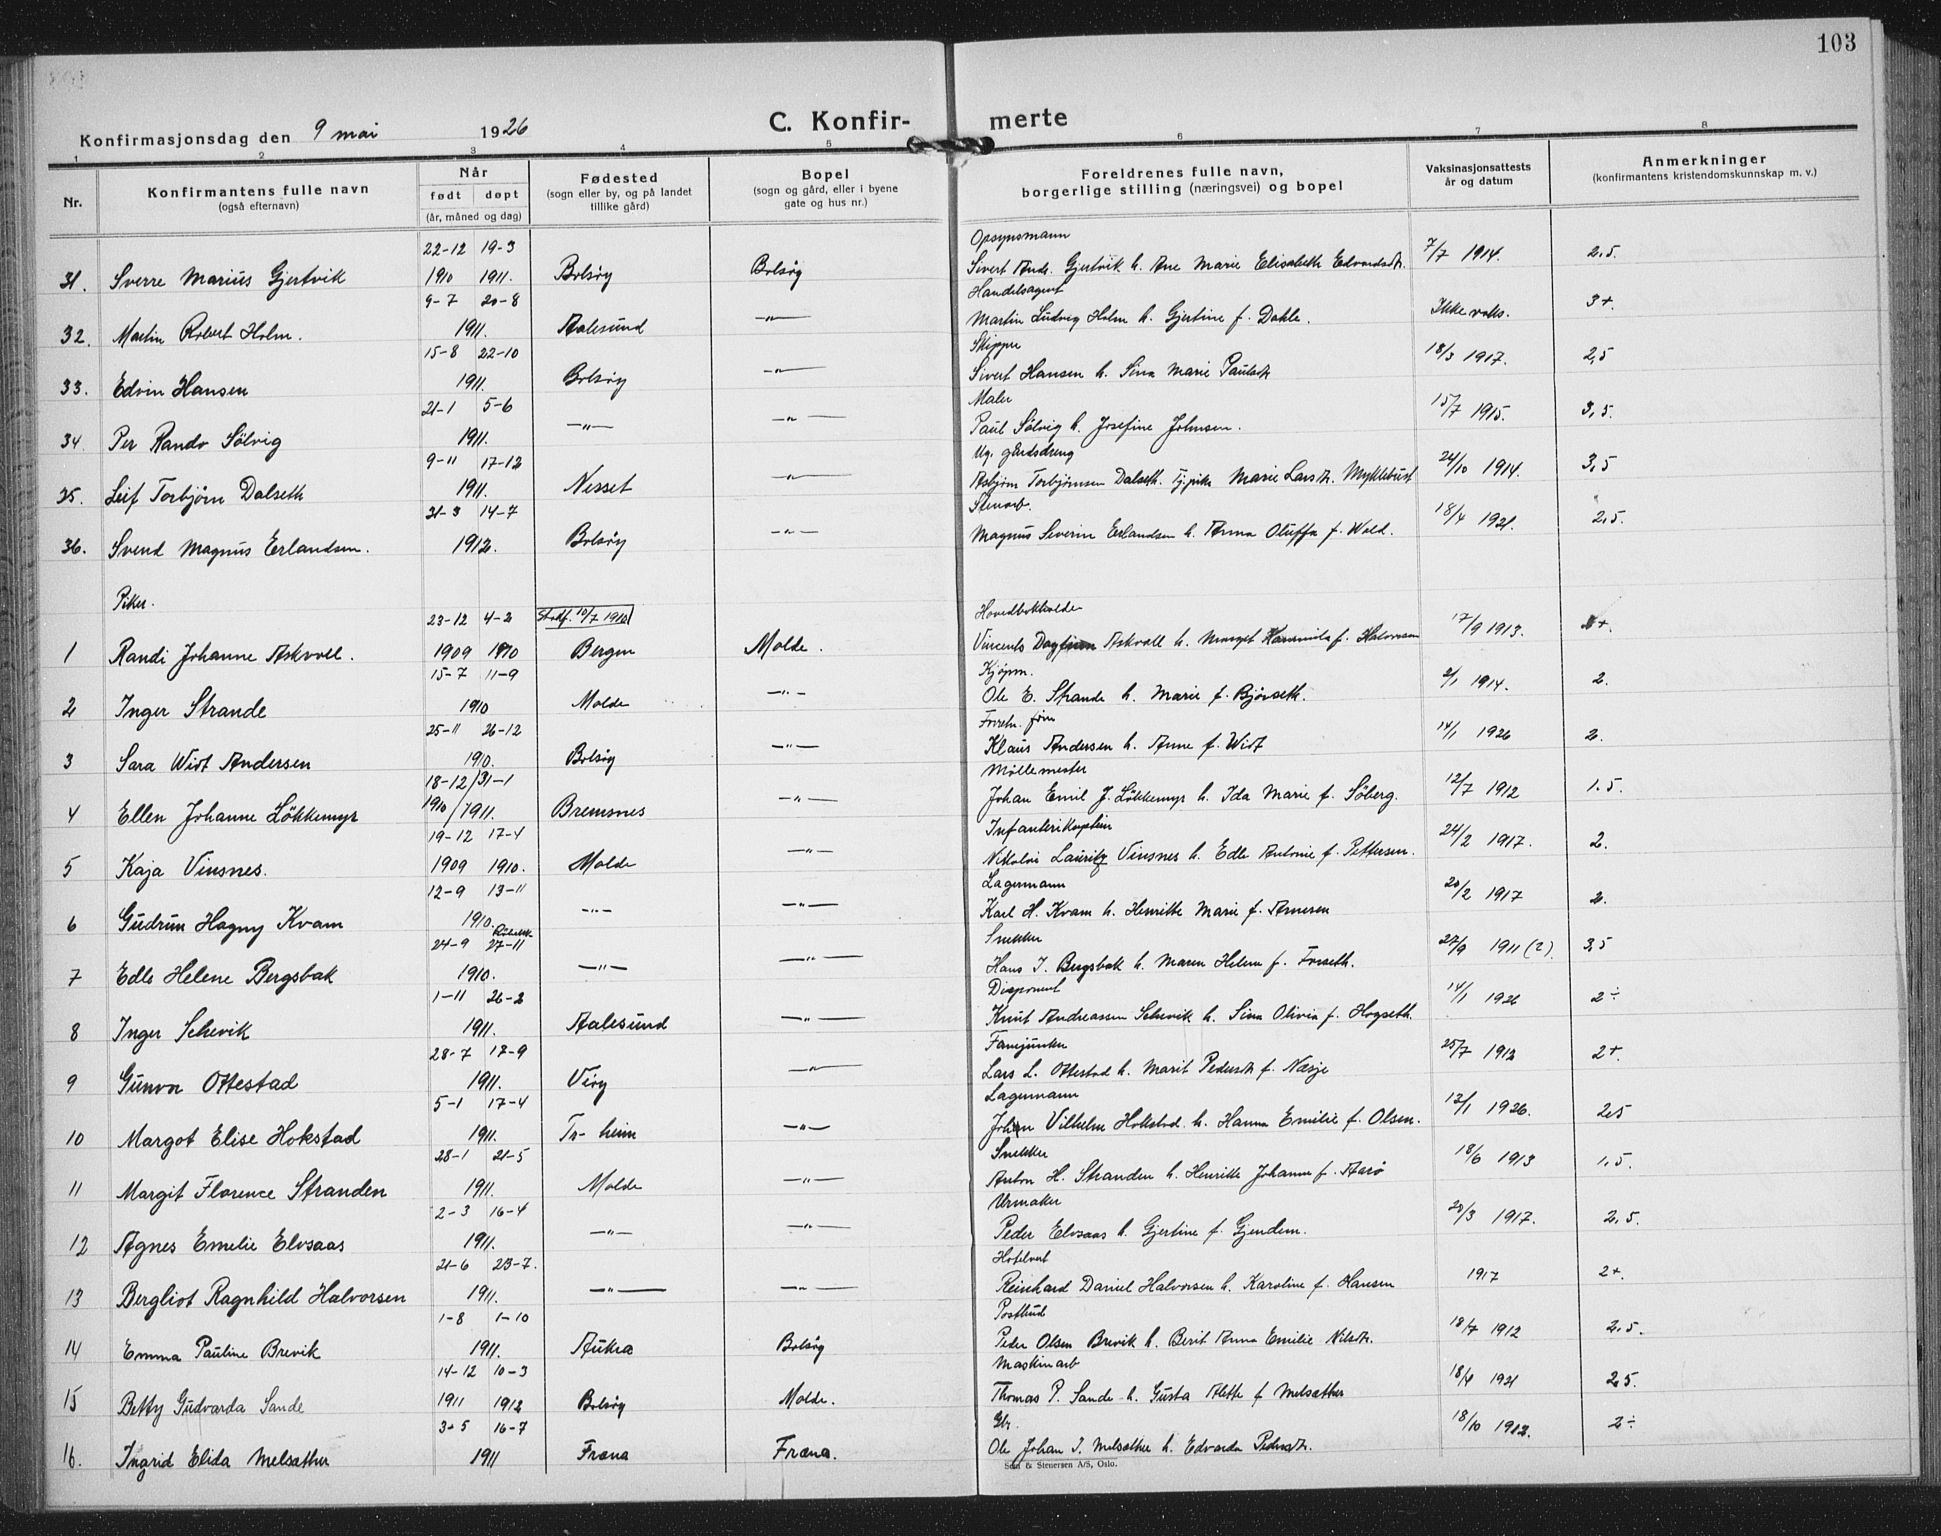 103
Konfirmasjonsdag den 9 mai 1926
C. Konfirmerte
1 2 3 4 5 6 7 8
Nr. Konfirmantens fulle navn (også efternavn) Når født døpt (år, måned og dag) Fødested (sogn eller by, og på landet tillike gård) Bopel (sogn og gård, eller i byene gate og hus nr.) Foreldrenes fulle navn, borgerlige stilling (næringsvei) og bopel Vaksinasjonsattests år og datum Anmerkninger (konfirmantens kristendomskunnskap m. v.)
22-12 19-3 Opsynsmann
31. Sverre Marius Gjertvik 1910 1911. Bolsøy Bolsøy Sivert Andr. Gjertvik h. Ane Marie Elisabeth Edvardsdtr. 7/7 1914. 2,5.
9-7 20-8 Handelsagent
32. Martin Robert Holm. 1911. Aalesund —"— Martin Ludvig Holm h. Gjertine f. Dahle. Ikke vaks. 3+
15-8 22-10 Skipper
33. Edvin Hansen 1911. Bolsøy —"— Sivert Hansen h. Sina Marie Paulsdtr 18/3 1917. 2,5
21-1 5-6 Maler
34 Per Randv Sölvig 1911. —"— —"— Paul Sölvig h. Josefine Johnsen. 15/7 1915. 3,5.
9-11 17-12 Ug. gårdsdreng
35. Leif Torbjörn Dalseth 1911. Nesset —"— Asbjörn Torbjörnsen Dalseth. Tj.pike Marie Larsdtr. Myklebust 24/10 1914. 3,5
21-3 14-7 Stenarb.
36. Svend Magnus Erlandsen. 1912. Bolsøy —"— Magnus Severin Erlandsen h. Anna Oluffa f. Wold. 18/4 1921. 2,5.
Piker.
23-12 4-2 Stadf. 10/7 1910 Hovedbokholder
1 Randi Johanne Askvoll. 1909 1910 Bergen Molde. Vincents Dagfinn Askvoll h. Margit f. Halvorsen 17/9 1913. +.
15-7 11-9 Kjøpm.
2 Inger Strande 1910 Molde —"— Ole E. Strande h. Marie f. Bjørseth. 2/1 1914. 2.
25-11 26-12 Forretn. fører
3 Sara Widt Andersen 1910. Bolsøy —"— Klaus Andersen h. Anne f. Widt 14/1 1926 2.
18-12/31-1 Møllemester
4 Ellen Johanne Lökkemyr 1910/1911. Bremsnes —"— Johan Emil J. Lökkemyr h. Ida Marie f. Söberg. 12/7 1912 1.5.
19-12 17-4 Infanterikaptein
5 Kaja Vinsnes. 1909 1910. Molde —"— Nikolai Lauritz Vinsnes h. Edle Antonie f. Pettersen. 24/2 1917. 2.
12-9 13-11 Lagermann
6 Gudrun Hagny Kvam 1910. —"— —"— Karl H. Kvam h. Henrikke Marie f. Arnesen 20/2 1917 2.
24-9 27-11 Snekker
7 Edle Helene Bergsbak 1910. —"— —"— Hans I. Bergsbak h. Maren Helene f. Forseth. 27/9 1911 (2) 3,5
1-11 26-2 Disponent
8 Inger Schevik 1911. Aalesund —"— Knut Andreassen Schevik h. Sina Olivia f. Hogseth. 14/1 1926 2÷
28-7 17-9 Fanejunker
9 Gunvor Ottestad 1911. Viøy —"— Lars L. Ottestad h. Marit Pedersdtr f. Næsje 25/7 1912 2+.
5-1 17-4 Lagermann
10 Margot Elise Hokstad 1911. Tr-heim —"— Johan Vilhelm Hokstad h. Hanna Emilie f. Olsen. 12/1 1926. 2,5
28-1 21-5 Snekker
11 Margit Florence Stranden 1911. Molde —"— Anton H. Stranden h. Henrikke Johanne f. Aarö 18/6 1913 1,5.
2-3 16-4 Urmaker
12 Agnes Emelie Elvsaas 1911. —"— —"— Peder Elvsaas h. Gjertine f. Gjendem. 20/3 1917. 2,5.
21-6 23-7. Hotelvert
13 Bergliot Ragnhild Halvorsen 1911. —"— —"— Reinhard Daniel Halvorsen h. Karoline f. Hansen 1917 2+.
1-8 1-10 Postbud
14 Emma Pauline Brevik 1911. Aukra Bolsøy Peder Olsen Brevik h. Berit Anna Emilie Nilsdtr. 18/7 1912 2,5.
14-12 10-3 Maskinarb
15 Betty Gudvarda Sande 1911 1912 Bolsøy Molde. Thomas P. Sande h. Gusta Alette f Melsæther 18/4 1921 2,5.
3-5 16-7 Gbr.
16. Ingrid Elida Melsæther 1911 Fræna Fræna. Ole Johan I. Melsæther h. Edvarda Pedersdtr. 18/10 1912. 2÷
Sem & Stenersen A/S, Oslo.